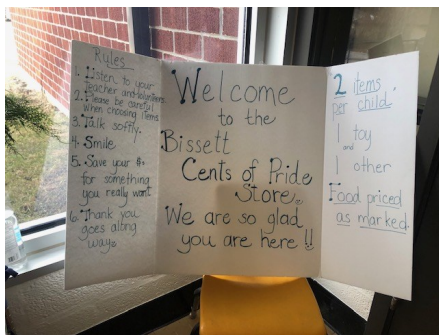 Rules
1. Listen to your
teacher and volunteers
2. Please be careful
when choosing items
3. Talk softly.
4. Smile
5. Save your #s
for something
you really want
6. Thank you
goes along
way.
Welcome
to the
Bissett
Cents of Pride
Store.
We are so glad
you are here !!
2 items
per child.
1 toy
and
1 other
Food priced
as marked.